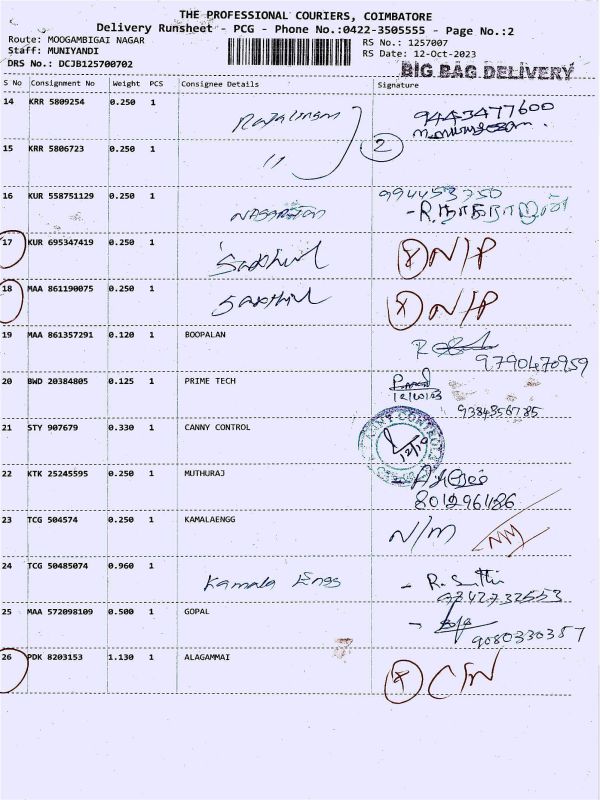 THE PROFESSIONAL COURIERS, COIMBATORE
Delivery Runsheet - PCG - Phone No.:0422-3505555 - Page No.:2
Route: MOOGAMBIGAI NAGAR RS No.: 1257007
Staff: MUNIYANDI RS Date: 12-Oct-2023
DRS No.: DCJB125700702 BIG BAG DELIVERY
S No Consignment No Weight PCS Consignee Details Signature
14 KRR 5809254 0.250 1 Rajalingam 9443477600
15 KRR 5806723 0.250 1 11 2
16 KUR 558751129 0.250 1 NAGARAJAN 994453750
- R.நாகராஜன்
17 KUR 695347419 0.250 1 Sakthivel X N/P
18 MAA 861190075 0.250 1 Sakthivel X N/P
19 MAA 861357291 0.120 1 BOOPALAN
9790470959
20 BWD 20384805 0.125 1 PRIME TECH
12/10/23
9384856785
21 STY 907679 0.330 1 CANNY CONTROL
CANNY CONTROLS
12/10
22 KTK 25245595 0.250 1 MUTHURAJ
801296486
23 TCG 504574 0.250 1 KAMALAENGG N/M NM
24 TCG 50485074 0.960 1 Kamala Engg - R. Sathi
9342732553
25 MAA 572098109 0.500 1 GOPAL
9080330357
26 PDK 8203153 1.130 1 ALAGAMMAI X C/N